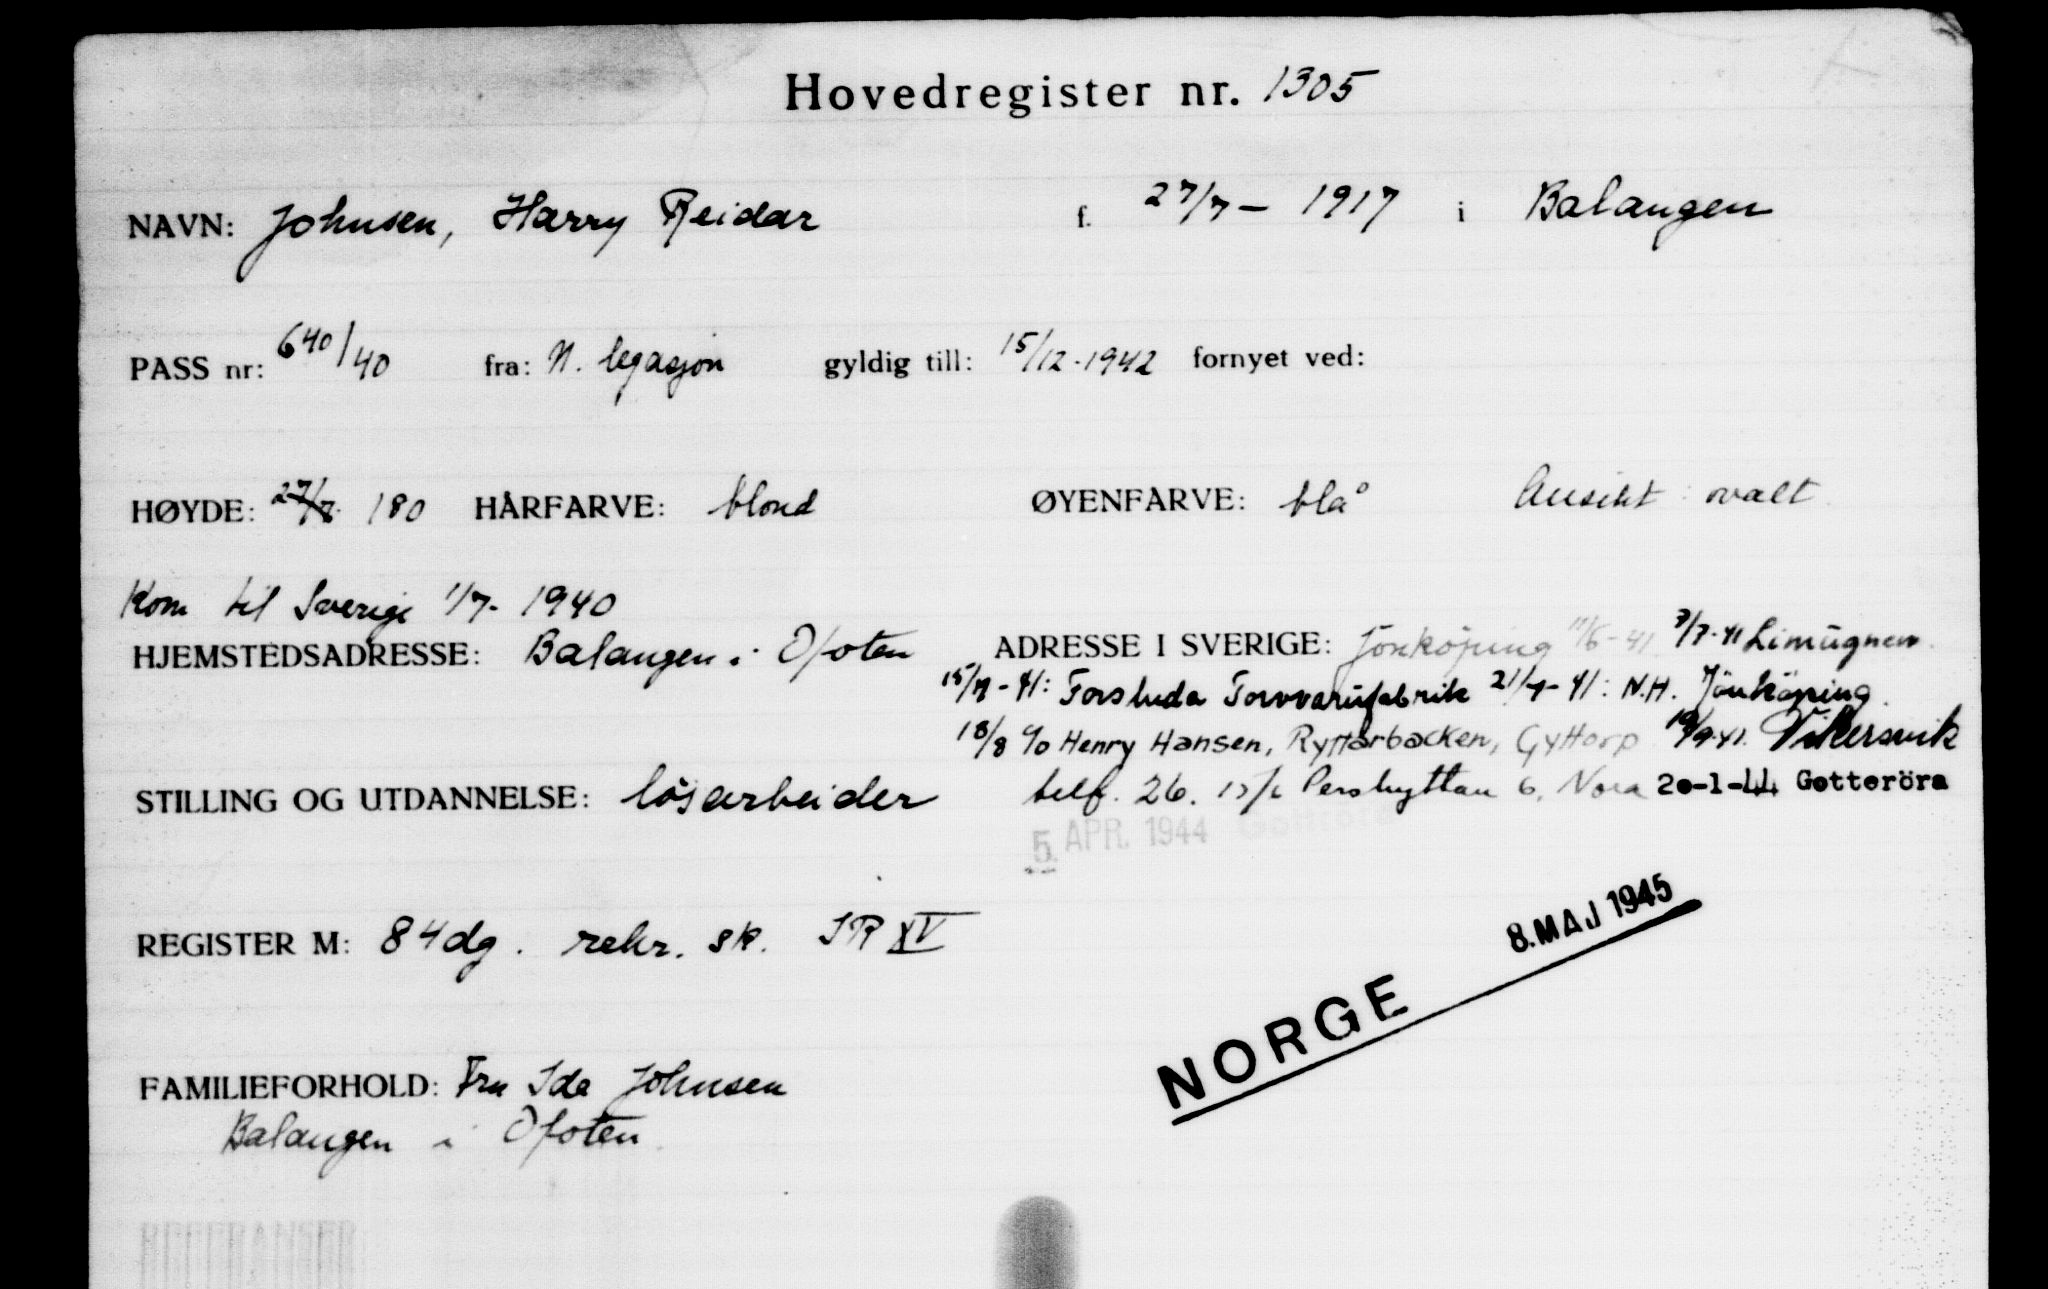 Hovedregister nr. 1305
NAVN: Johnsen, Harry Reidar f. 27/7 – 1917 i Balangen
PASS nr: 640/40 fra: N. legasjon gyldig till: 15/12.1942 fornyet ved:
HØYDE: 27/7 180 HÅRFARVE: blond ØYENFARVE: blå Ansikt: ovalt
Kom til Sverige 1/7- 1940
HJEMSTEDSADRESSE: Balangen i Ofoten ADRESSE I SVERIGE: Jönköping 11/6-41 3/7-41 Limugnen
15/7-41: Torsluda Torvvarufabrik 21/7-41: N.H. Jönköping
18/8 c/o Henry Hansen, Ryttarbacken, Gyttorp 19/9.41. Vikersvik
STILLING OG UTDANNELSE: lösarbeider telf. 26. Pershyttan 6, Nora 20-1-44 Gotteröra
5. APR. 1944 Gottröra
REGISTER M: 84 dg. rekr. sk. IR XV
8. MAJ 1945
NORGE
FAMILIEFORHOLD: Fru Ida Johnsen
Balangen i Ofoten.